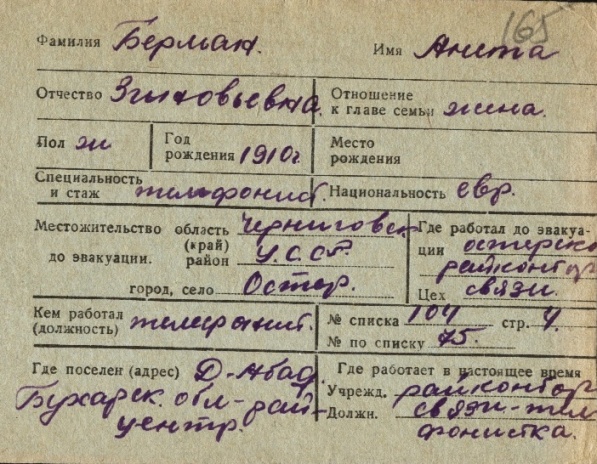 165
Фамилия Берман. Имя Анета
Отчество Зиновьевна. Отношение к главе семьи жена.
Пол ж Год рождения 1910г Место рождения
Специальность и стаж телефонист. Национальность евр.
Местожительство до эвакуации. область (край) Черниговск
район У.С.С.Р.
город, село Остер.
Где работал до эвакуа-
ции остерско
райконтор
Цех связи.
Кем работал (должность) телефонист.
№ списка 104 стр. 4
№ по списку 75.
Где поселен (адрес) Д-Абад
Бухарск. обл-рай-
центр.
Где работает в настоящее время
Учрежд. райконтор
Должн. связи-тел
фонистка.